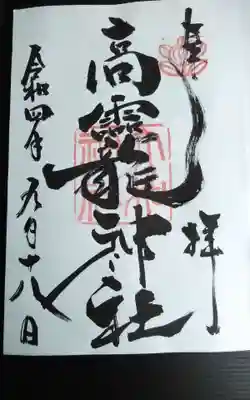 奉拝
高龗神社
令和四年九月十八日